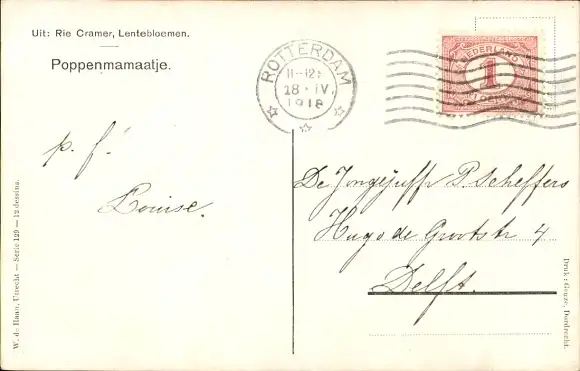 Uit: Rie Cramer, Lentebloemen.
Poppenmamaatje.
ROTTERDAM
11-12
28·IV
1918
NEDERLAND
1
p. f.
Louise.
De Jongejuffr P. Scheffers
Hugo de Grootstr 4
Delft.
W. de Haan, Utrecht — Serie 129 — 12 dessins.
Druk: Geuze, Dordrecht.